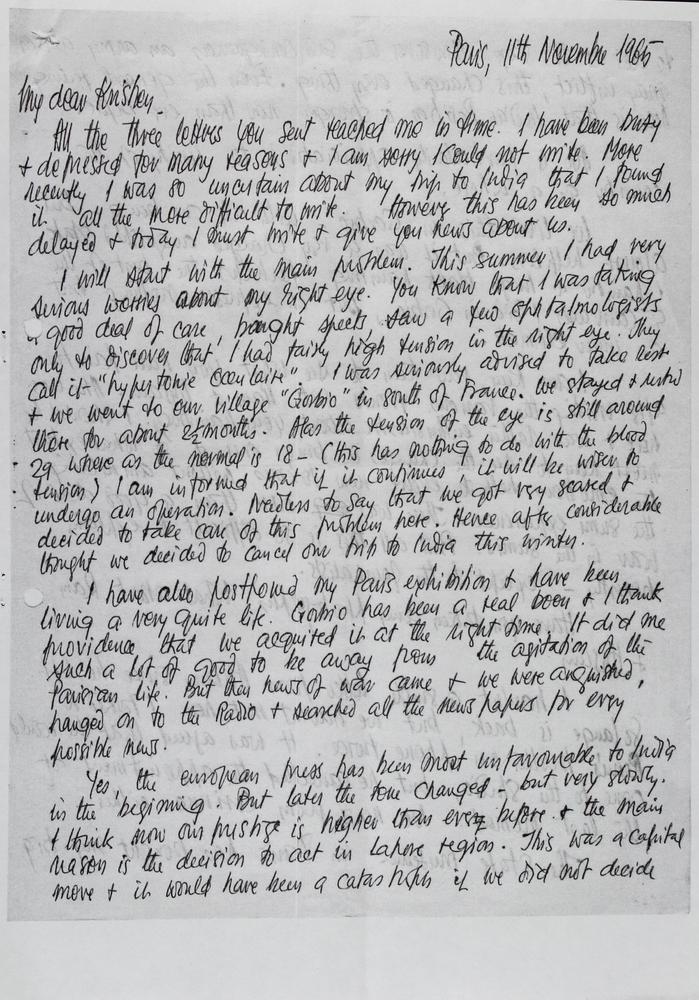 Paris, 11th Novembre 1965
My dear Krishen_
All the three letters you sent reached me in time. I have been busy
+ depressed for many reasons + I am sorry I could not write. More
recently I was so uncertain about my trip to India that I found
it all the more difficult to write. However this has been so much
delayed + today I must write + give you news about us.
I will start with the main problem. This summer I had very
serious worries about my right eye. You know that I was taking
a good deal of care, bought specks, saw a few ophtalmologists
only to discover that, I had fairy high tension in the right eye. They
call it "hypertonie occulaire". I was seriously advised to take rest
+ we went to our village "Gorbio" in south of France. We stayed & rested
there for about 2½ months. Alas the tension of the eye is still around
29 where as the normal is 18 – (this has nothing to do with the blood
tension) I am informed that if it continues, it will be wiser to
undergo an operation. Needless to say that we got very scared +
decided to take care of this problem here. Hence after considerable
thought we decided to cancel our trip to India this winter.
I have also postponed my Paris exhibition + have been
living a very quite life. Gorbio has been a real boon + I thank
providence that we acquited it at the right time. It did me
such a lot of good to be away from the agitation of the
Parisian life. But then news of war came + we were anguished,
hanged on to the Radio + searched all the news papers for every
possible news.
Yes, the european press has been most unfavourable to India
in the begining. But later the tone changed – but very slowly.
I think now our prestige is higher than ever before. + the main
reason is the decision to act in Lahore region. This was a capital
move + it would have been a catastrophe if we did not decide